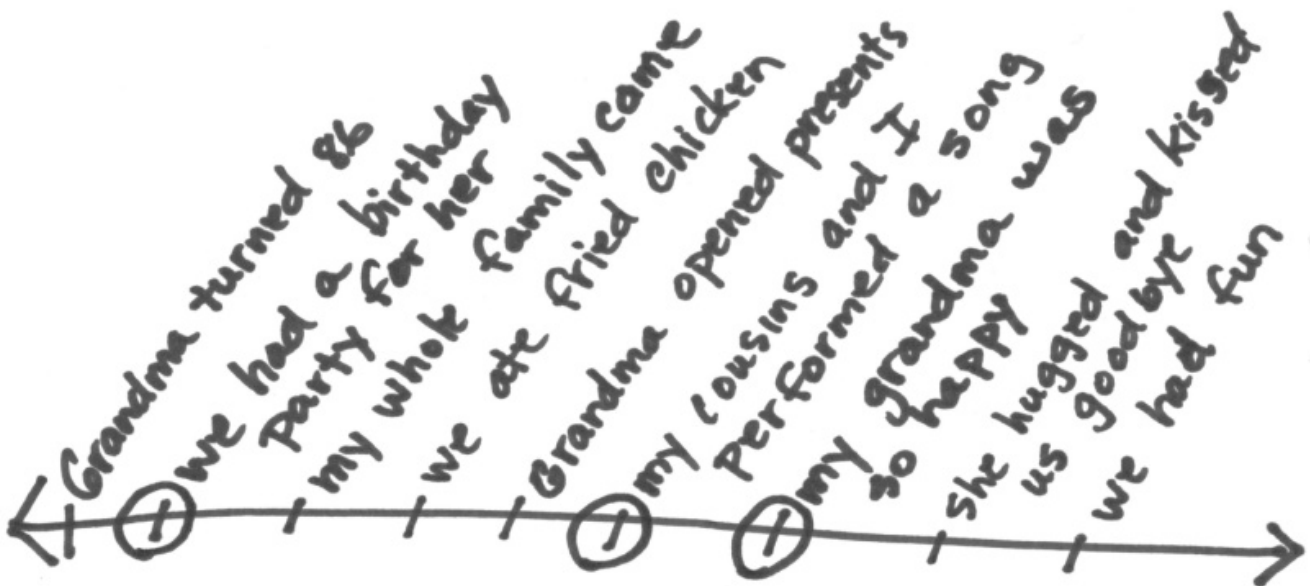 Grandma turned 86
we had a birthday
party for her
my whole family came
we ate fried chicken
Grandma opened presents
my cousins and I
performed a song
my grandma was
so happy
she hugged and kissed
us goodbye
we had fun